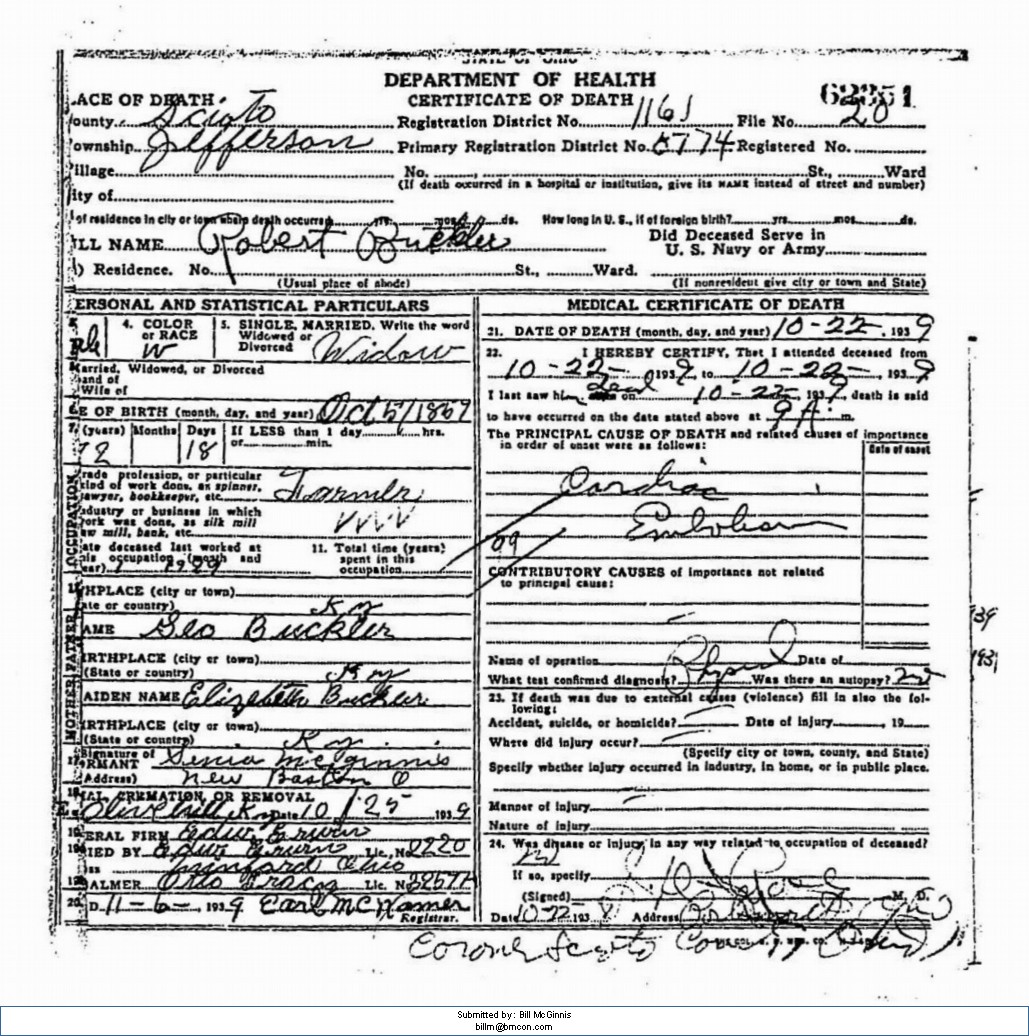 STATE OF OHIO
DEPARTMENT OF HEALTH
CERTIFICATE OF DEATH
62351
ACE OF DEATH
ounty Scioto Registration District No. 1161 File No. 20
ownship Jefferson Primary Registration District No. 8774 Registered No.
illage No. St., Ward
(If death occurred in a hospital or institution, give its NAME instead of street and number)
ity of
of residence in city or town where death occurred yrs. mos. ds. How long in U. S., if of foreign birth? yrs. mos. ds.
LL NAME Robert Buckler Did Deceased Serve in
U. S. Navy or Army
) Residence. No. St., Ward.
(Usual place of abode) (If nonresident give city or town and State)
ERSONAL AND STATISTICAL PARTICULARS
4. COLOR or RACE W
5. SINGLE, MARRIED, Write the word
Widowed or
Divorced Widow
arried, Widowed, or Divorced
and of
Wife of
E OF BIRTH (month, day, and year) Oct 5/1867
(years) Months Days If LESS than 1 day hrs.
or min.
72 18
rade profession, or particular
kind of work done, as spinner,
awyer, bookkeeper, etc. Farmer
ndustry or business in which
ork was done, as silk mill
aw mill, bank, etc.
ate deceased last worked at
his occupation (month and
ear)
11. Total time (years)
spent in this
occupation
HPLACE (city or town)
ate or country) Ky
AME Geo Buckler
IRTHPLACE (city or town)
(State or country) Ky
AIDEN NAME Elizabeth Buckler
IRTHPLACE (city or town)
(State or country) Ky
Signature of
ORMANT McGinnis
(Address) New Boston O
IAL, CREMATION, OR REMOVAL
Olive Hill Ky Date 10/25 1939
ERAL FIRM Edw Erwin
IED BY Edw Erwin Lic. No 2220
ss Minford Ohio
ALMER Lic. No 3257A
20. D. 11-6-, 1939 Earl McNamer
Registrar.
MEDICAL CERTIFICATE OF DEATH
21. DATE OF DEATH (month, day, and year) 10-22, 1939
22. I HEREBY CERTIFY, That I attended deceased from
10-22-, 1939, to 10-22-, 1939
I last saw him dead on 10-22-, 1939, death is said
to have occurred on the date stated above at 9 A. m.
The PRINCIPAL CAUSE OF DEATH and related causes of importance
in order of onset were as follows:
Date of onset
Cardiac
Embolism
99
CONTRIBUTORY CAUSES of importance not related
to principal cause:
Name of operation Date of
What test confirmed diagnosis? Physical Was there an autopsy? no
23. If death was due to external causes (violence) fill in also the fol-
lowing:
Accident, suicide, or homicide? Date of injury, 19
Where did injury occur?
(Specify city or town, county, and State)
Specify whether injury occurred in industry, in home, or in public place.
Manner of injury
Nature of injury
24. Was disease or injury in any way related to occupation of deceased?
No
If so, specify
(Signed) M. D.
Date 10-22, 193 Address Ohio
Coroner Scioto County Ohio
Submitted by: Bill McGinnis
billm@bmcon.com